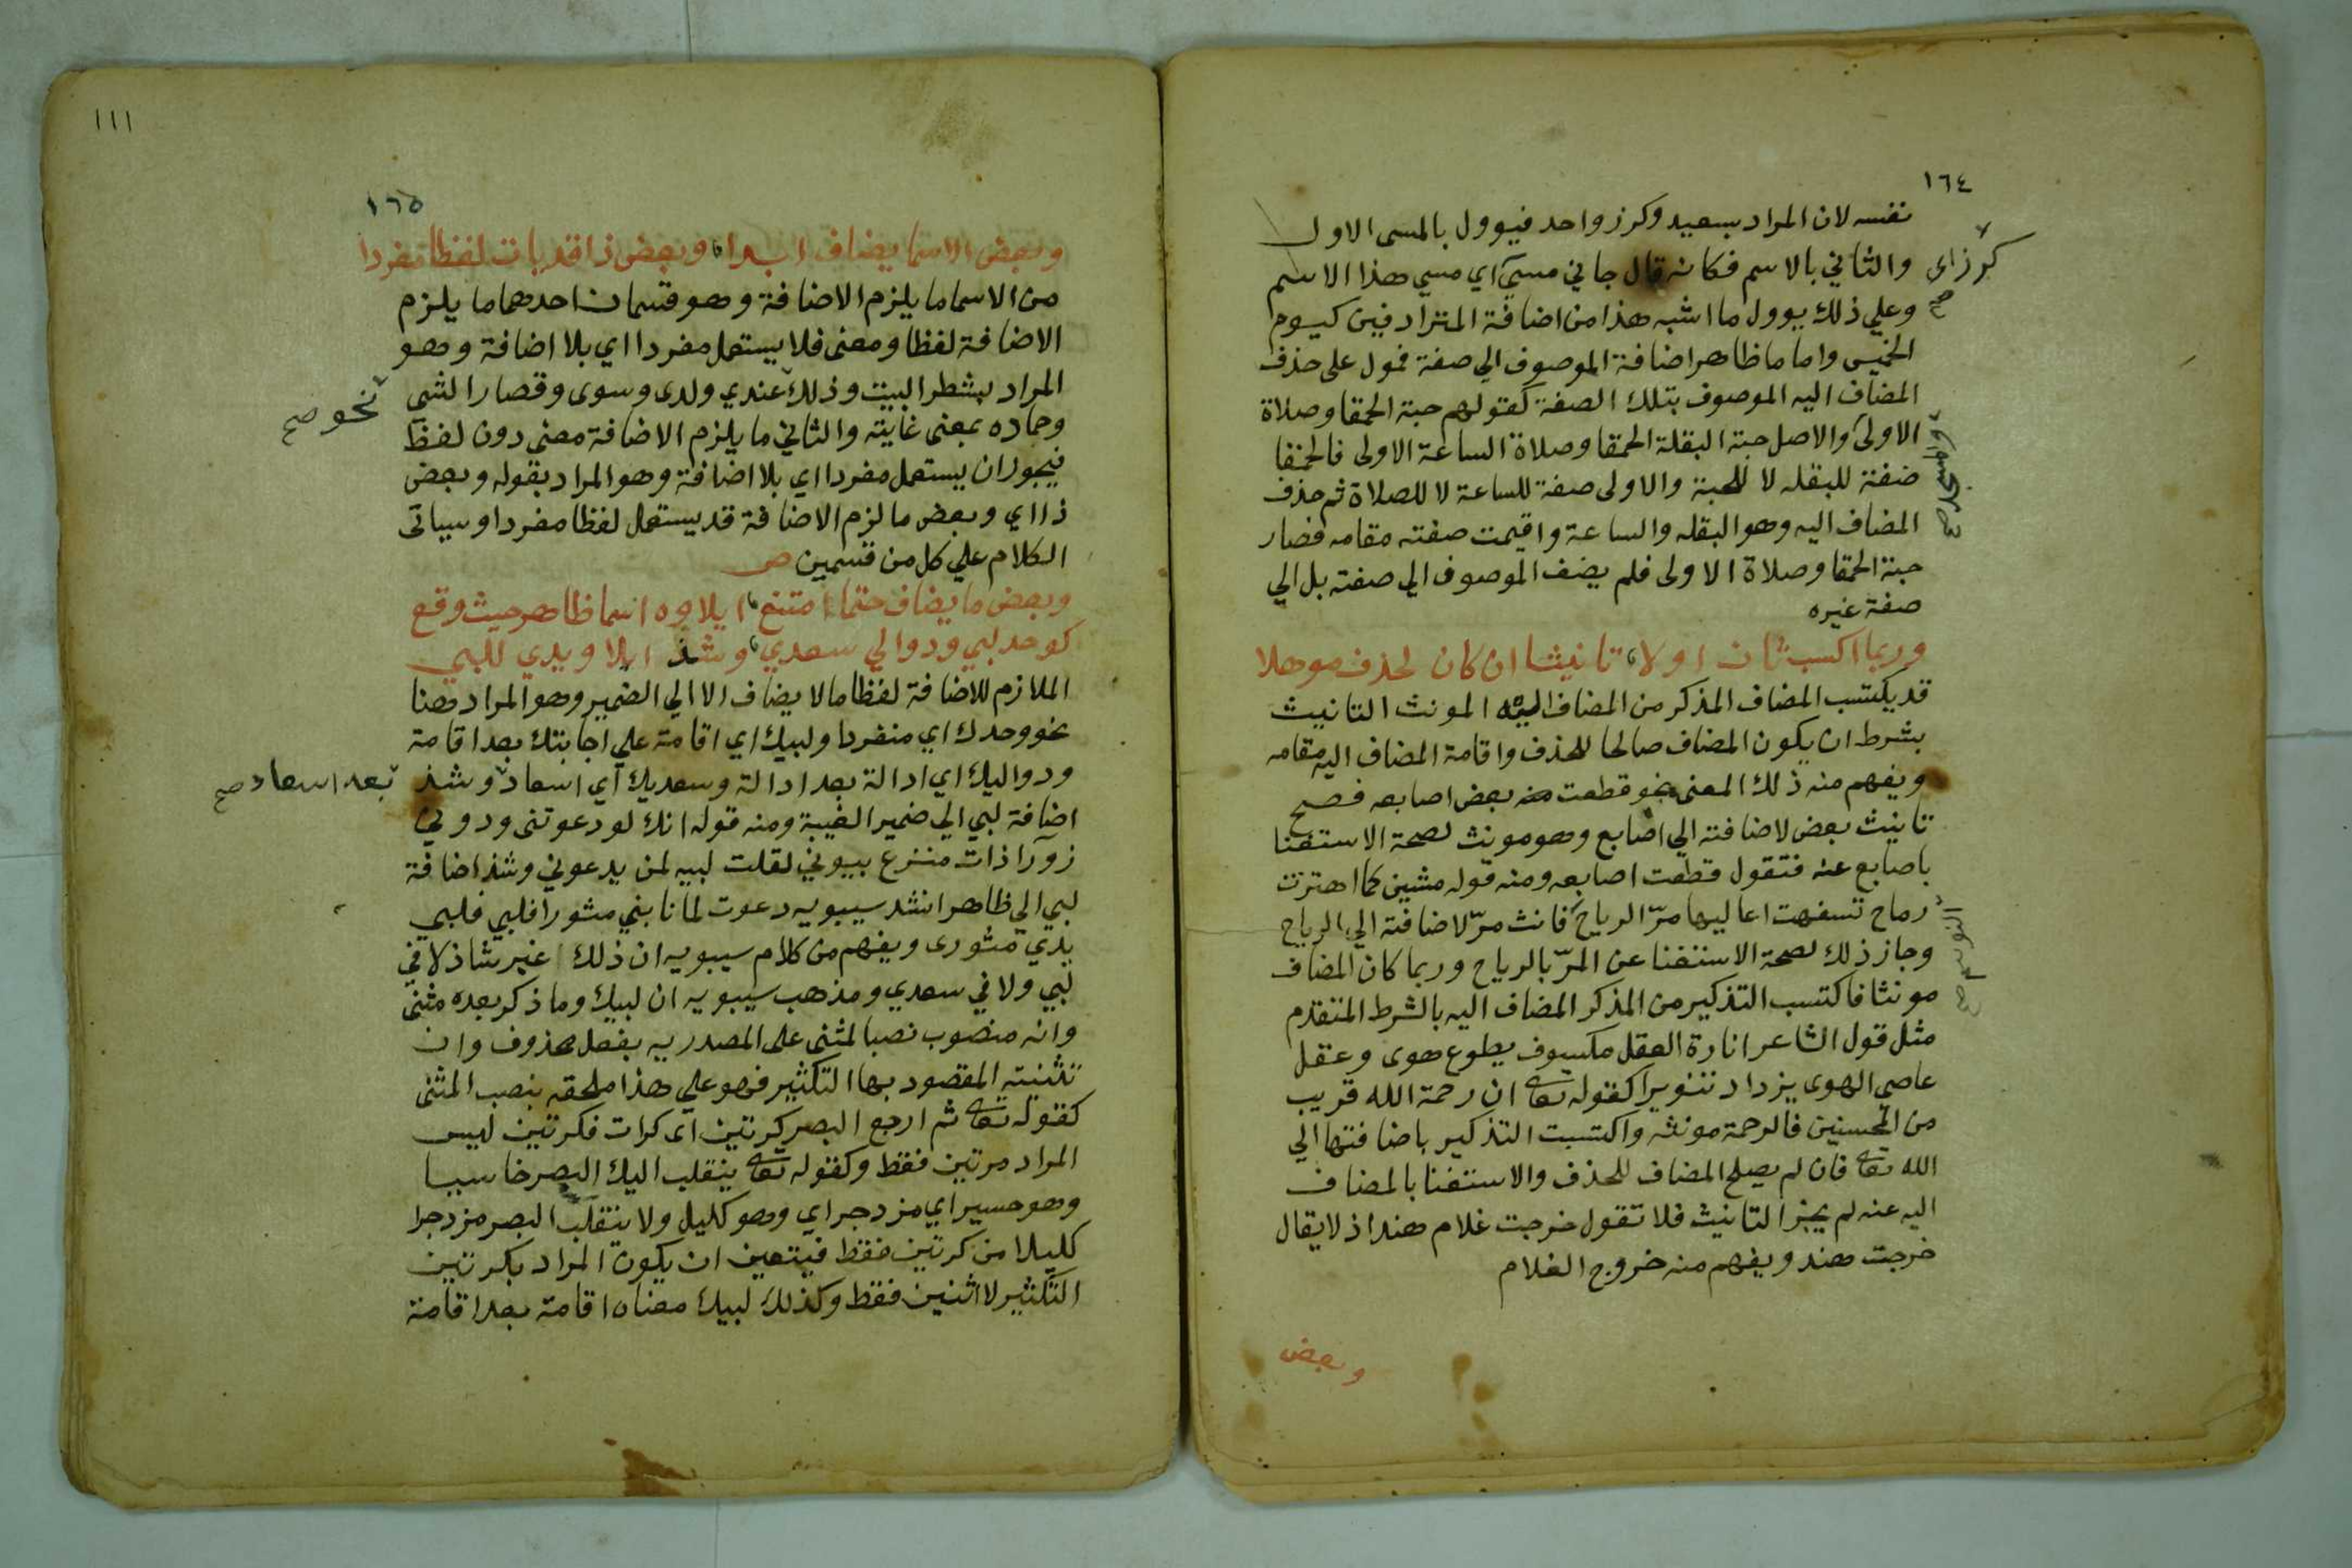 ١٦٤
نفسه لان المراد بسعيد وكرز واحد فيوول بالمسمى الاول
والثاني بالاسم فكانه قال جاني مسمى اي مسمي هذا الاسم
كرز اى صح
وعلي ذلك يوول ما اشبه هذا من اضافة المترادفين كيوم
الخميس واما ما ظاهر اضافة الموصوف الي صفة فمول على حذف
المضاف اليه الموصوف بتلك الصفة كقولهم حبة الحمقا وصلاة
الاولى والاصل حبة البقلة الحمقا وصلاة الساعة الاولى فالحمقا
صفة للبقله لا للحبة والاولى صفة للساعة لا للصلاة ثم حذف
المضاف اليه وهو البقله والساعة واقيمت صفته مقامه فصار
حبة الحمقا وصلاة الاولى فلم يضف الموصوف الي صفته بل الي
صفة غيره
وربما اكسب ثان اولا تانيثا ان كان لحذف موهلا
قد يكتسب المضاف المذكر من المضاف اليه المونث التانيث
بشرط ان يكون المضاف صالحا للحذف واقامة المضاف اليه مقامه
ويفهم منه ذلك المعنى نحو قطعت منه بعض اصابعه فصح
تانيث بعض لاضافته الي اصابع وهو مونث لصحة الاستغنا
باصابع عنه فتقول قطعت اصابعه ومنه قوله مشين كما اهتزت
رماح تسفهت اعاليها مرّ الرياح فانث مرّ لاضافته الي الرياح
وجاز ذلك لصحة الاستغنا عن المرّ بالرياح وربما كان المضاف
مونثا فاكتسب التذكير من المذكر المضاف اليه بالشرط المتقدم
مثل قول الشاعر انارة العقل مكسوف بطوع هوى وعقل
عاصي الهوى يزداد تنويرا كقوله تعالى ان رحمة الله قريب
من المحسنين فالرحمة مونثه واكتسبت التذكير باضافتها الي
الله تعالى فان لم يصلح المضاف للحذف والاستغنا بالمضاف
اليه عنه لم يجز التانيث فلا تقول خرجت غلام هند اذ لا يقال
خرجت هند ويفهم منه خروج الغلام
وبعض
١١١
١٦٥
وبعض الاسما يضاف ابدا وبعض ذا قد يات لفظا مفردا
من الاسما ما يلزم الاضافة وهو قسمان احدهما ما يلزم
الاضافة لفظا ومعنى فلا يستعمل مفردا اي بلا اضافة وهو
المراد بشطر البيت وذلك عندي ولدى وسوى وقصارا لشى
نحو صح
وحماده بمعنى غايته والثاني ما يلزم الاضافة معنى دون لفظ
فيجوز ان يستعمل مفردا اي بلا اضافة وهو المراد بقوله وبعض
ذا اي وبعض ما لزم الاضافة قد يستعمل لفظا مفردا وسياتى
الكلام علي كل من قسمين ص
وبعض ما يضاف حتما امتنع ايلاوه اسما ظاهر حيث وقع
كوحد لبي ودوالي سعدي وشذ ايلاو يدي للبي
الملازم للاضافة لفظا ما لا يضاف الا الي الضمير وهو المراد هنا
نحو وحدك اي منفردا ولبيك اي اقامة علي اجابتك بعد اقامة
ودواليك اي ادالة بعد ادالة وسعديك اي اسعاد وشذ
بعد اسعاد صح
اضافة لبي الي ضمير الغيبة ومنه قوله انك لو دعوتنى ودوني
زورا ذات منزع بيوني لقلت لبيه لمن يدعوني وشذ اضافة
لبي الي ظاهر انشد سيبويه دعوت لما نابني مشورا فلبي فلبي
يدي مشورى ويفهم من كلام سيبويه ان ذلك غير شاذ لا في
لبي ولا في سعدي ومذهب سيبويه ان لبيك وما ذكر بعده مثنى
وانه منصوب نصبا لمثنى على المصدريه بفعل محذوف وان
تثنيته المقصود بها التكثير فهو علي هذا ملحق بنصب المثنى
كقوله تعالى ثم ارجع البصر كرتين اى كرات فكرتين ليس
المراد مرتين فقط وكقوله تعالى ينقلب اليك البصر خاسيا
وهو حسير اي مزدجرا اي وهو كليل ولا ينقلب البصر مزدجرا
كليلا من كرتين فقط فيتعين ان يكون المراد بكرتين
التكثير لا اثنين فقط وكذلك لبيك معناه اقامة بعد اقامة